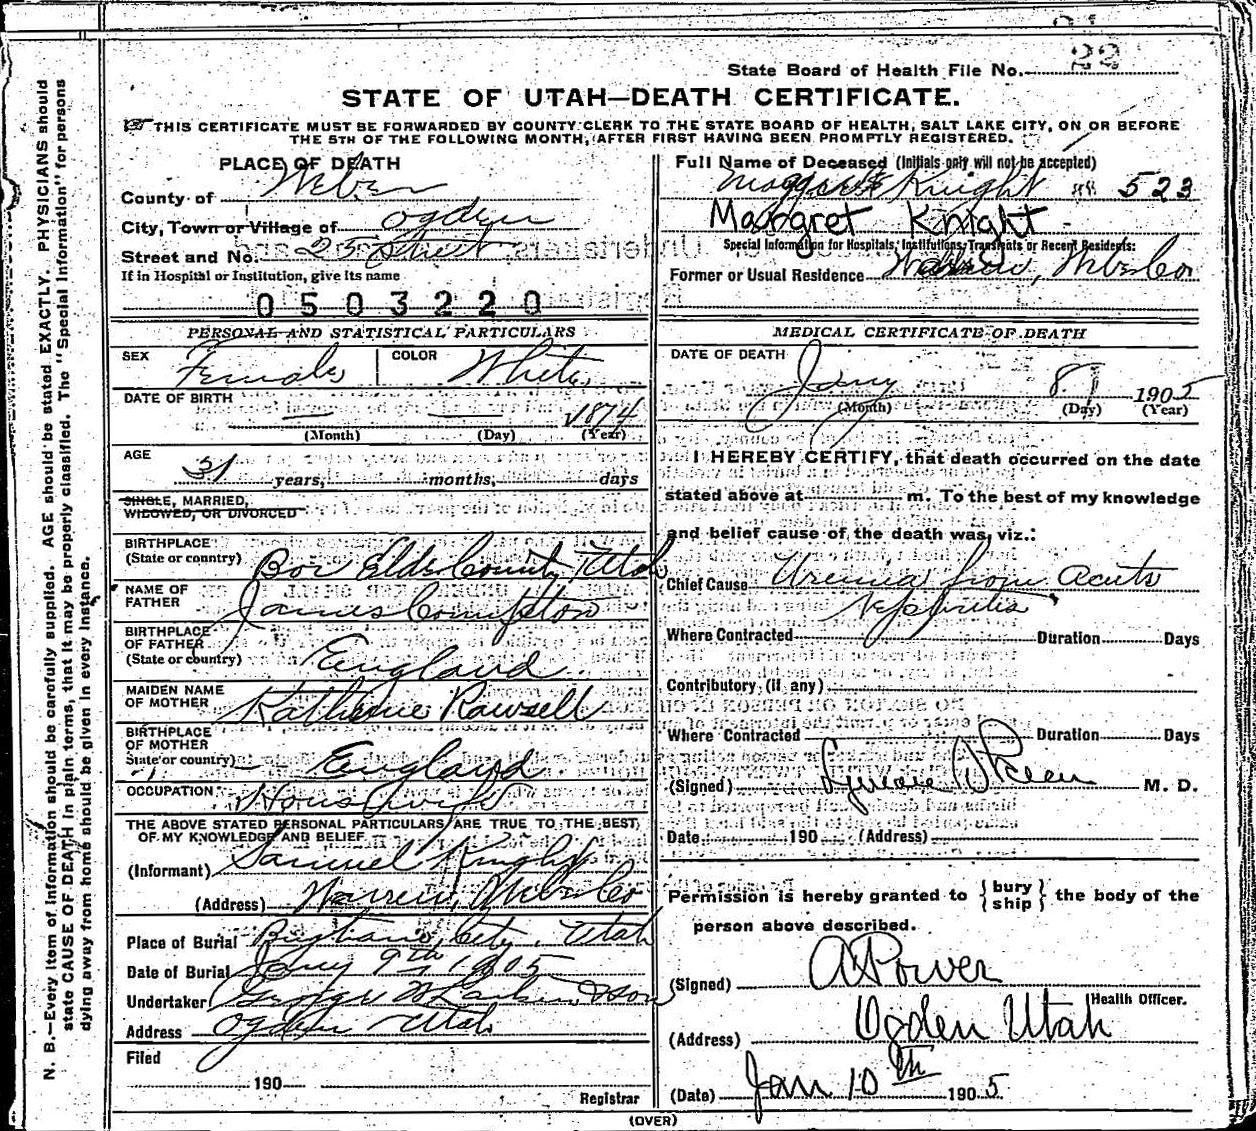 22
State Board of Health File No.
STATE OF UTAH—DEATH CERTIFICATE.
THIS CERTIFICATE MUST BE FORWARDED BY COUNTY CLERK TO THE STATE BOARD OF HEALTH, SALT LAKE CITY, ON OR BEFORE
THE 5TH OF THE FOLLOWING MONTH, AFTER FIRST HAVING BEEN PROMPTLY REGISTERED.
PLACE OF DEATH
County of Weber
City, Town or Village of Ogden
Street and No. 25 Street
If in Hospital or Institution, give its name
0503220
PERSONAL AND STATISTICAL PARTICULARS
SEX Female COLOR White
DATE OF BIRTH 1874
(Month) (Day) (Year)
AGE 31 years, months, days
SINGLE, MARRIED,
WIDOWED, OR DIVORCED
BIRTHPLACE
(State or country) Box Elder County Utah
NAME OF
FATHER James Compton
BIRTHPLACE
OF FATHER
(State or country) England
MAIDEN NAME
OF MOTHER Katherine Rawsell
BIRTHPLACE
OF MOTHER
State or country) England
OCCUPATION Housewife
THE ABOVE STATED PERSONAL PARTICULARS ARE TRUE TO THE BEST
OF MY KNOWLEDGE AND BELIEF
(Informant) Samuel Knight
(Address) Warren, Weber Co
Place of Burial City, Utah
Date of Burial Jany 9th 1905
Undertaker George W Larkin & Son
Address Ogden Utah
Filed
190
Registrar
Full Name of Deceased (Initials only will not be accepted)
Knight 523
Margret Knight
Special Information for Hospitals, Institutions, Transients or Recent Residents:
Former or Usual Residence Warren, Weber Co
MEDICAL CERTIFICATE OF DEATH
DATE OF DEATH Jany 8 1905
(Month) (Day) (Year)
I HEREBY CERTIFY, that death occurred on the date
stated above at m. To the best of my knowledge
and belief cause of the death was, viz.:
Chief Cause Uremia from Acute
Nephritis
Where Contracted Duration Days
Contributory (if any)
Where Contracted Duration Days
(Signed) M. D.
Date 190 (Address)
Permission is hereby granted to {bury
ship} the body of the
person above described.
(Signed) A Power
Health Officer.
(Address) Ogden Utah
(Date) Jan 10th 1905
(OVER)
N. B.—Every item of information should be carefully supplied. AGE should be stated EXACTLY. PHYSICIANS should
state CAUSE OF DEATH in plain terms, that it may be properly classified. The "Special Information" for persons
dying away from home should be given in every instance.